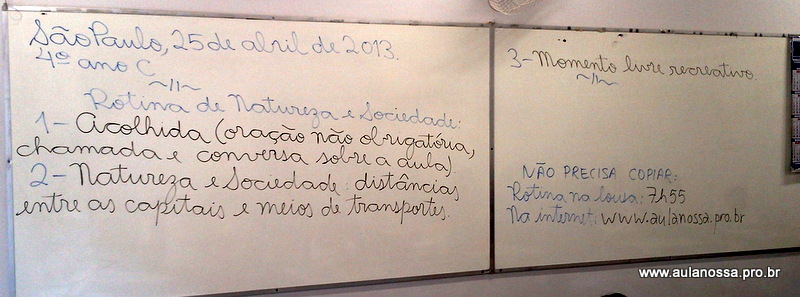 São Paulo, 25 de abril de 2013.
4º ano C
~//~
Rotina de Natureza e Sociedade:
1- Acolhida (oração não obrigatória,
chamada e conversa sobre a aula).
2- Natureza e Sociedade: distâncias
entre as capitais e meios de transportes.
3- Momento livre recreativo.
~//~
NÃO PRECISA COPIAR:
Rotina na lousa: 7h55
Na internet: www.aulanossa.pro.br
www.aulanossa.pro.br